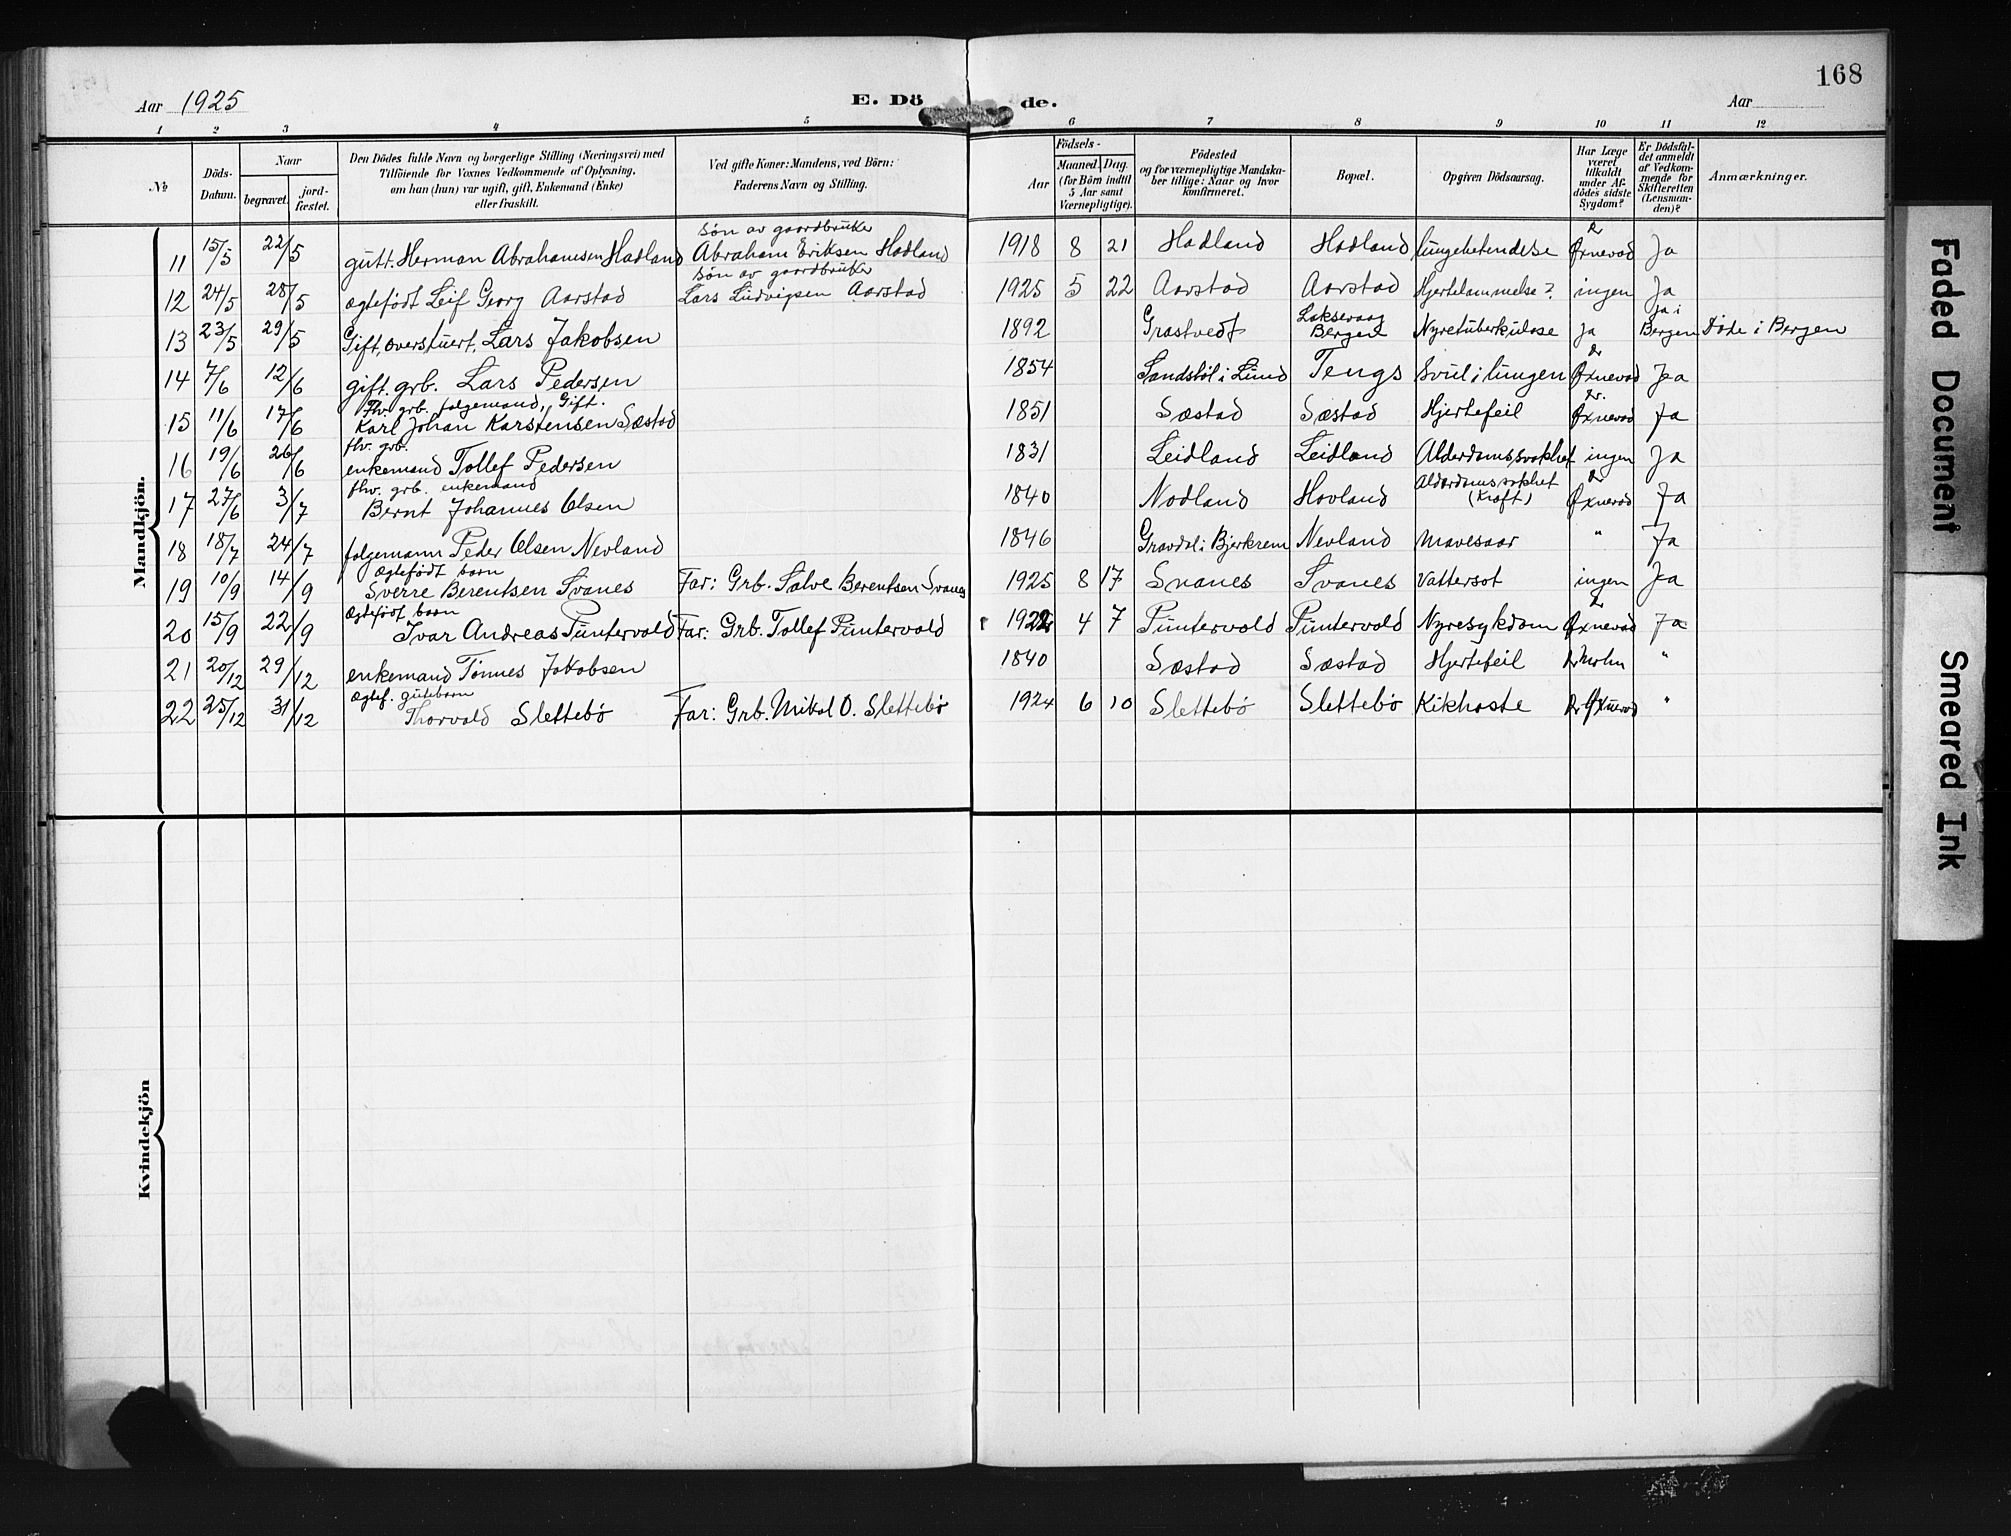 168
Aar 1925
E. Dö de.
Aar
1 2 3 4 5 6 7 8 9 10 11 12
No
Döds-Datum.
Naar
begravet.
jord-fæstet.
Den Dödes fulde Navn og borgerlige Stilling (Næringsvei) med
Tilföiende for Voxnes Vedkommende af Oplysning,
om han (hun) var ugift, gift, Enkemand (Enke)
eller fraskilt.
Ved gifte Koner: Mandens, ved Börn:
Faderens Navn og Stilling.
Födsels-
Aar
Maaned. Dag.
(for Börn indtil
5 Aar samt
Værnepligtige).
Födested
og for værnepligtige Mandska-
ber tillige: Naar og hvor
konfirmeret.
Bopæl.
Opgiven Dödsaarsag.
Har Læge
været
tilkaldt
under Af-
dödes sidste
Sygdom?
Er Dödsfal-
det anmeldt
af Vedkom-
mende for
Skifteretten
(Lensman-
den)?
Anmærkninger.
Mandkjön.
11 15/5 22/5 gutt. Herman Abrahamsen Hadland søn av gaardbruker Abraham Eriksen Hadland 1918 8 21 Hadland Hadland lungebetendelse Dr Øxnevad Ja
12 24/5 28/5 ægtefødt Leif Georg Aarstad søn av gaardbruker Lars Ludvigsen Aarstad 1925 5 22 Aarstad Aarstad Hjertelammelse? ingen Ja
13 23/5 29/5 Gift, overstuert, Lars Jakobsen 1892 Grastvedt Laksevaag Bergen Nyretuberkulose Ja Ja i Bergen Døde i Bergen
14 7/6 12/6 gift. grb. Lars Pedersen 1854 Sandstøl i Lund Tengs Svul i lungen Dr Øxnevad Ja
15 11/6 17/6 Fhv. grb. folgemand, Gift. Karl Johan Karstensen Sæstad 1851 Sæstad Sæstad Hjertefeil Dr. Øxnevad Ja
16 19/6 26/6 fhv. grb. enkemand Tollef Pedersen 1831 Leidland Leidland Alderdomssvakhet ingen Ja
17 27/6 3/7 fhv. grb. enkemand Bernt Johannes Olsen 1840 Nodland Hovland Alderdomssvakhet (Kræft) Dr Øxnevad Ja
18 18/7 24/7 folgemann Peder Olsen Nevland 1846 Gravdal i Bjerkrem Nevland Mavesaar " Ja
19 10/9 14/9 Ægtefødt barn Sverre Berentsen Svanes Far: Grb. Salve Berentsen Svanes 1925 8 17 Svanes Svanes Vattersot ingen Ja
20 15/9 22/9 Ægtefødt barn Ivar Andreas Puntervold Far: Grb. Tollef Puntervold 1922 4 7 Puntervold Puntervold Nyresykdom Dr Øxnevad Ja
21 20/12 29/12 enkemand Tønnes Jakobsen 1840 Sæstad Sæstad Hjertefeil "
22 25/12 31/12 Ægtef. gutebarn Thorvald Slettebø Far: Grb. Mikal O. Slettebø 1924 6 10 Slettebø Slettebø Kikhoste Dr Øxnevad "
Kvindekjön
Faded Document
Smeared Ink